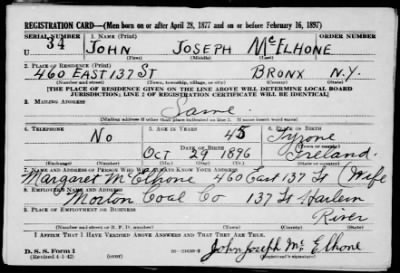 REGISTRATION CARD—(Men born on or after April 28, 1877 and on or before February 16, 1897)
SERIAL NUMBER 1. NAME (Print) ORDER NUMBER
U 34 JOHN JOSEPH McELHONE
2. PLACE OF RESIDENCE (Print)
460 EAST 137 ST BRONX N.Y.
(Number and street) (Town, township, village, or city) (County) (State)
[THE PLACE OF RESIDENCE GIVEN ON THE LINE ABOVE WILL DETERMINE LOCAL BOARD
JURISDICTION; LINE 2 OF REGISTRATION CERTIFICATE WILL BE IDENTICAL]
3. MAILING ADDRESS
Same
(Mailing address if other than place indicated on line 2. If same insert word same)
4. TELEPHONE 5. AGE IN YEARS 6. PLACE OF BIRTH
No 45 Tyrone
DATE OF BIRTH (Town or county)
OCT 29 1896 Ireland
(Exchange) (Number) (Mo.) (Day) (Yr.) (State or country)
7. NAME AND ADDRESS OF PERSON WHO WILL ALWAYS KNOW YOUR ADDRESS
Margaret McElhone 460 East 137 St (Wife
8. EMPLOYER'S NAME AND ADDRESS
Morton Coal Co 137 St Harlem
9. PLACE OF EMPLOYMENT OR BUSINESS
River
(Number and street or R. F. D. number) (Town) (County) (State)
I AFFIRM THAT I HAVE VERIFIED ABOVE ANSWERS AND THAT THEY ARE TRUE.
D. S. S. Form 1
(Revised 4-1-42)
John Joseph Mc Elhone